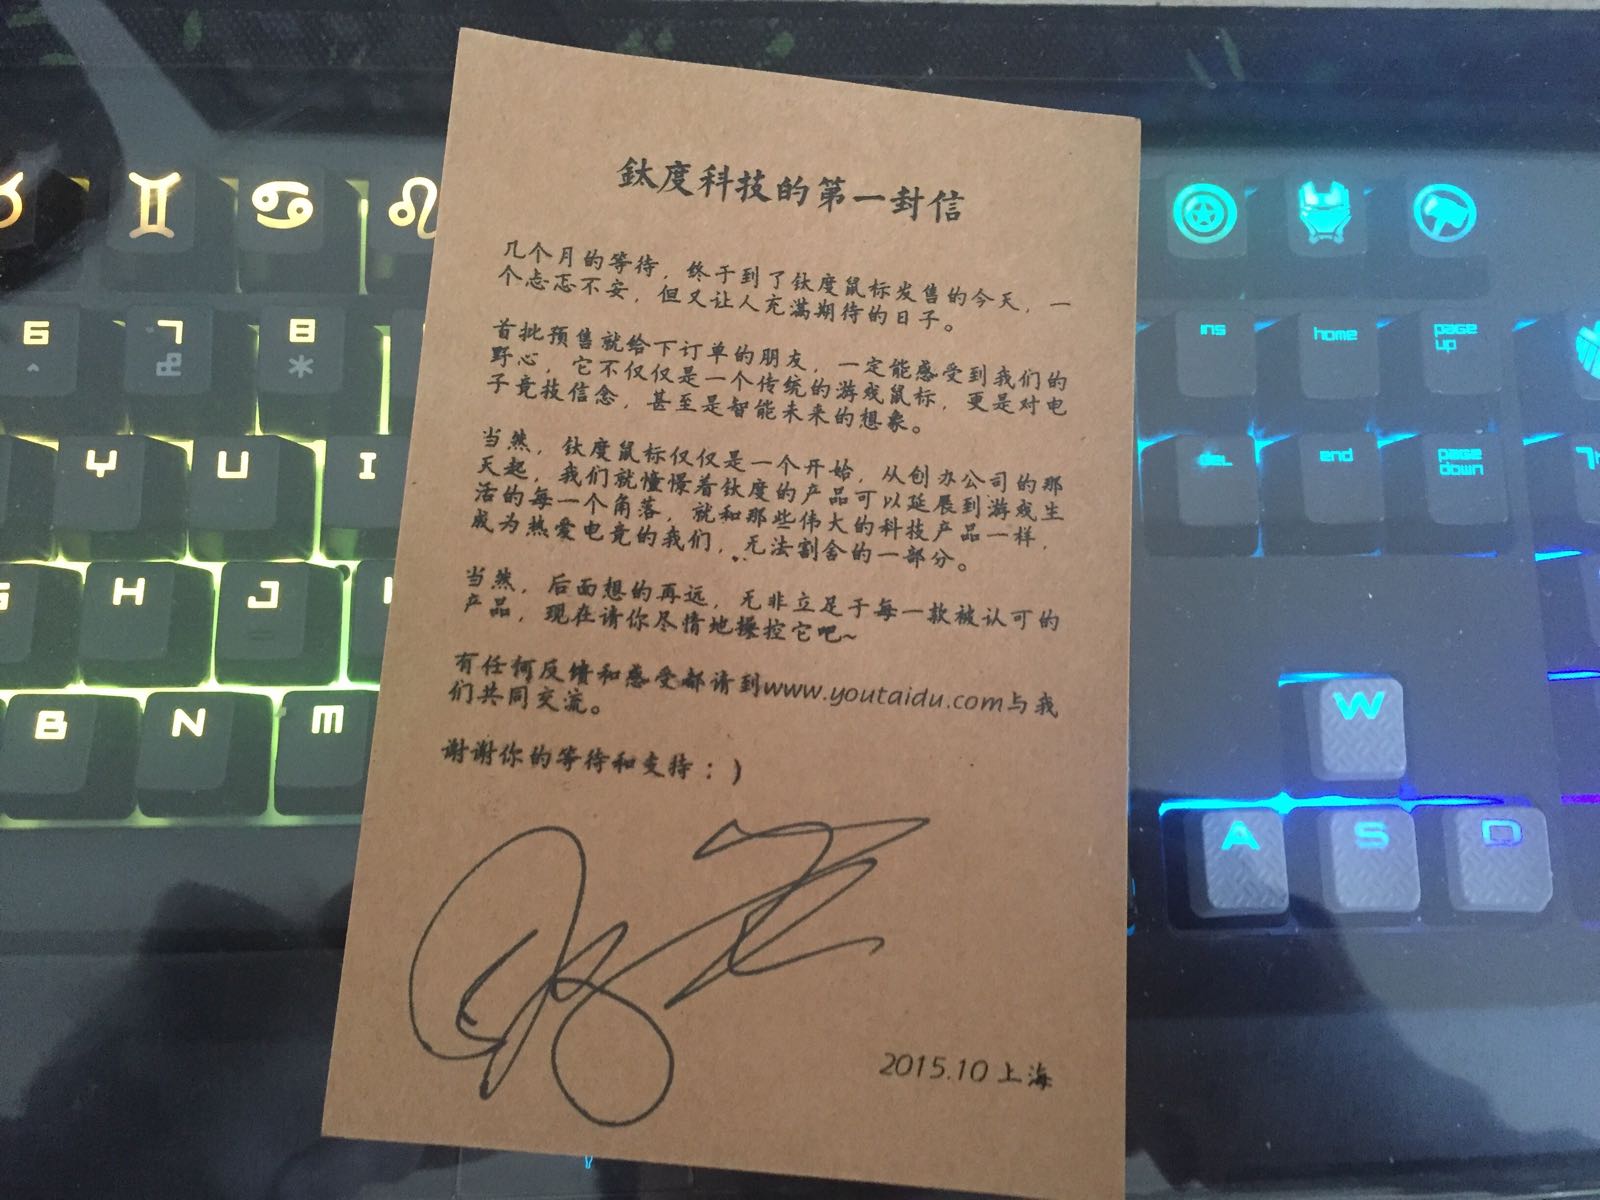 鈦度科技的第一封信
几个月的等待，终于到了钛度鼠标发售的今天，一
个忐忑不安，但又让人充满期待的日子。
首批预售就给下订单的朋友，一定能感受到我们的
野心，它不仅仅是一个传统的游戏鼠标，更是对电
子竞技信念，甚至是智能未来的想象。
当然，钛度鼠标仅仅是一个开始，从创办公司的那
天起，我们就憧憬着钛度的产品可以延展到游戏生
活的每一个角落，就和那些伟大的科技产品一样，
成为热爱电竞的我们，无法割舍的一部分。
当然，后面想的再远，无非立足于每一款被认可的
产品，现在请你尽情地操控它吧~
有任何反馈和感受都请到www.youtaidu.com与我
们共同交流。
谢谢你的等待和支持：)
2015.10 上海
6 7 8
^ *
Y U I
H J
B N M
ins home page up
del end page down
W
A S D